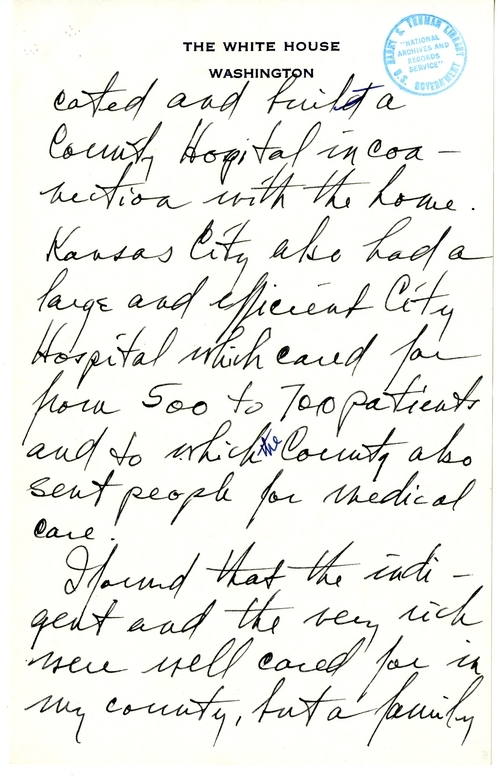 THE WHITE HOUSE
WASHINGTON
HARRY S. TRUMAN LIBRARY
"NATIONAL
ARCHIVES AND
RECORDS
SERVICE"
U.S. GOVERNMENT
cated and build a
County Hospital in con-
nection with the home.
Kansas City also had a
large and efficient City
Hospital which cared for
from 500 to 700 patients
and to which the County also
sent people for medical
care.
I found that the indi-
gent and the very rich
were well cared for in
my county, but a family